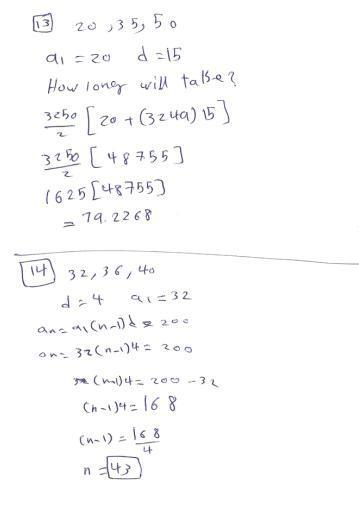 13 20, 35, 50
a1 = 20 d = 15
How long will take?
3250/2 [20 + (3249) 15]
3250/2 [48755]
1625 [48755]
= 79.2268
14 32, 36, 40
d = 4 a1 = 32
an = a1 (n-1)d = 200
an = 32 (n-1)4 = 200
(n-1)4 = 200 - 32
(n-1)4 = 168
(n-1) = 168/4
n = 43